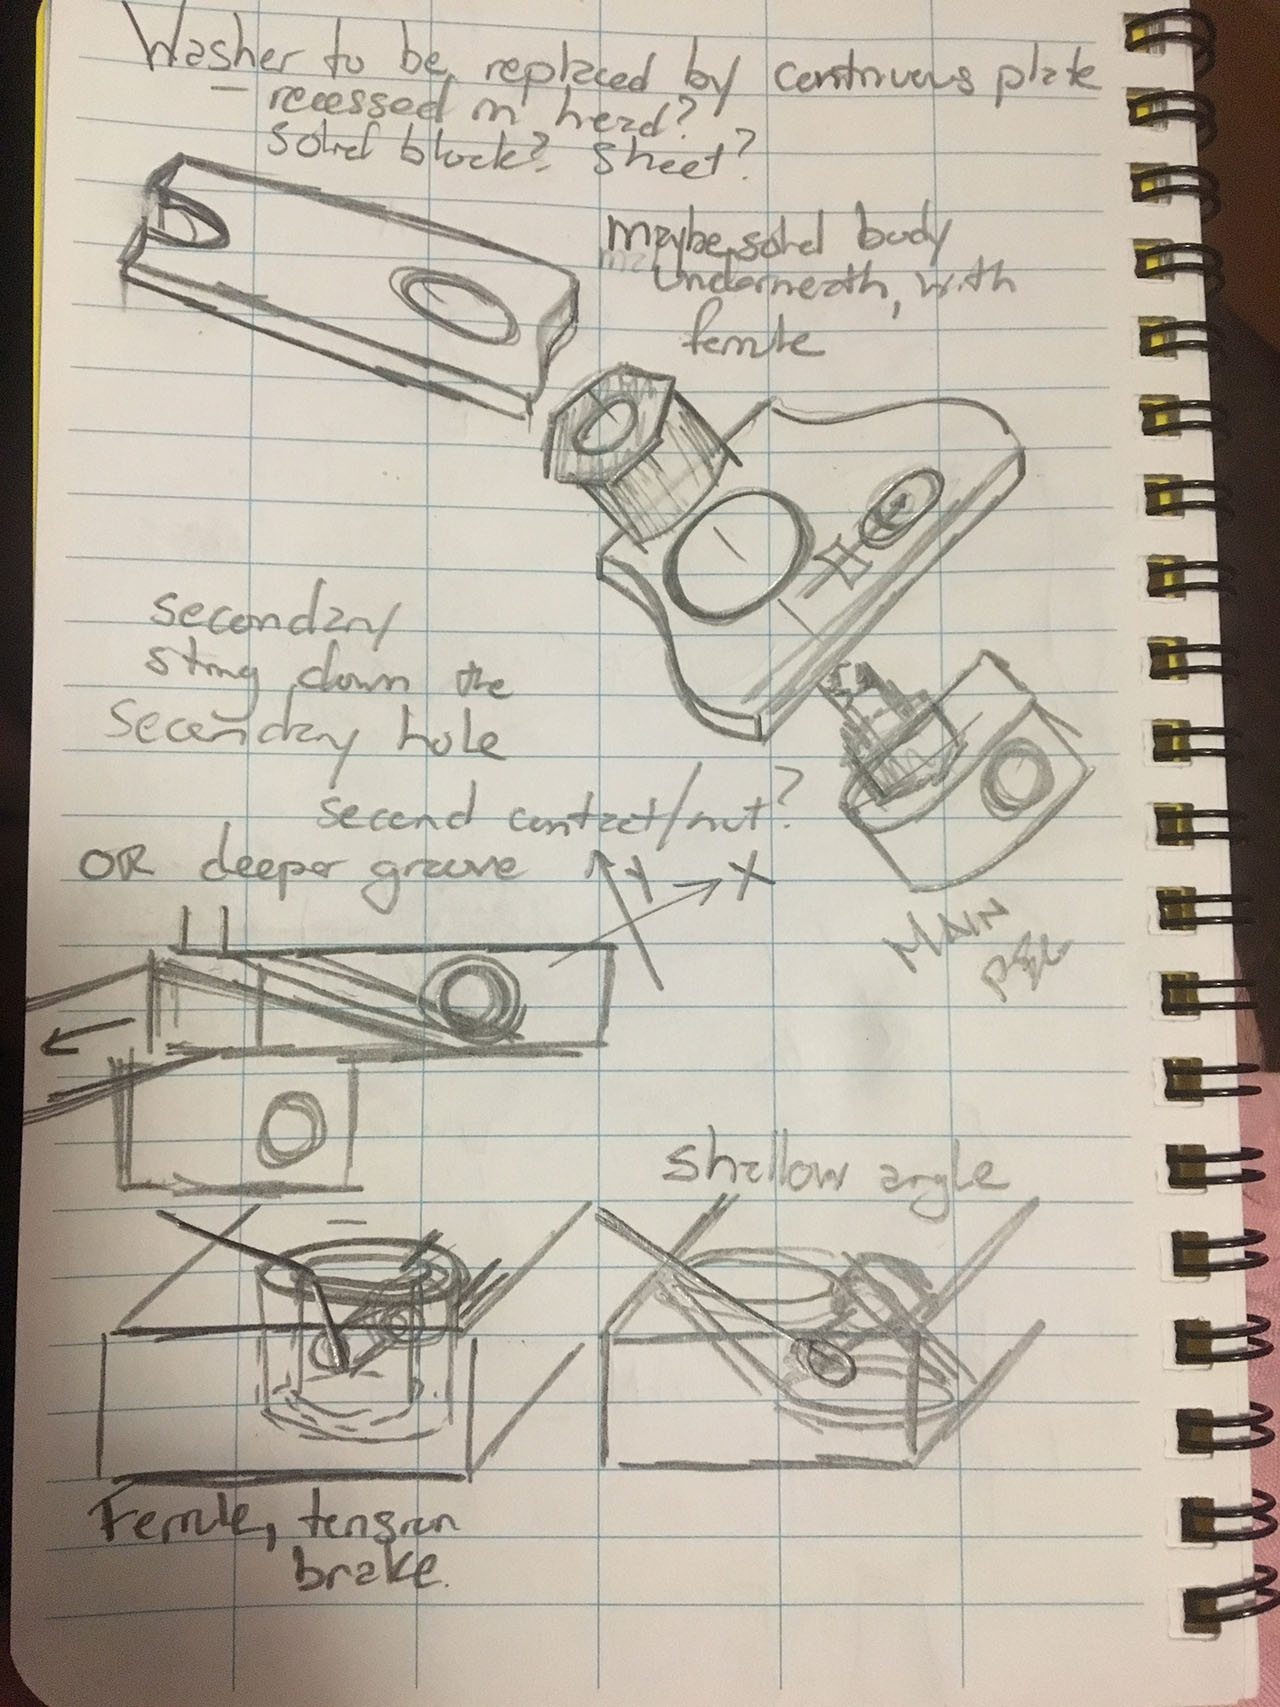 Washer to be replaced by continuous plate
- recessed in head?
solid block? sheet?
maybe solid body
underneath, with
ferrule
secondary
string down the
secondary hole
second contact/nut?
OR deeper groove
Y → X
MAIN
shallow angle
Ferrule, tension
brake.